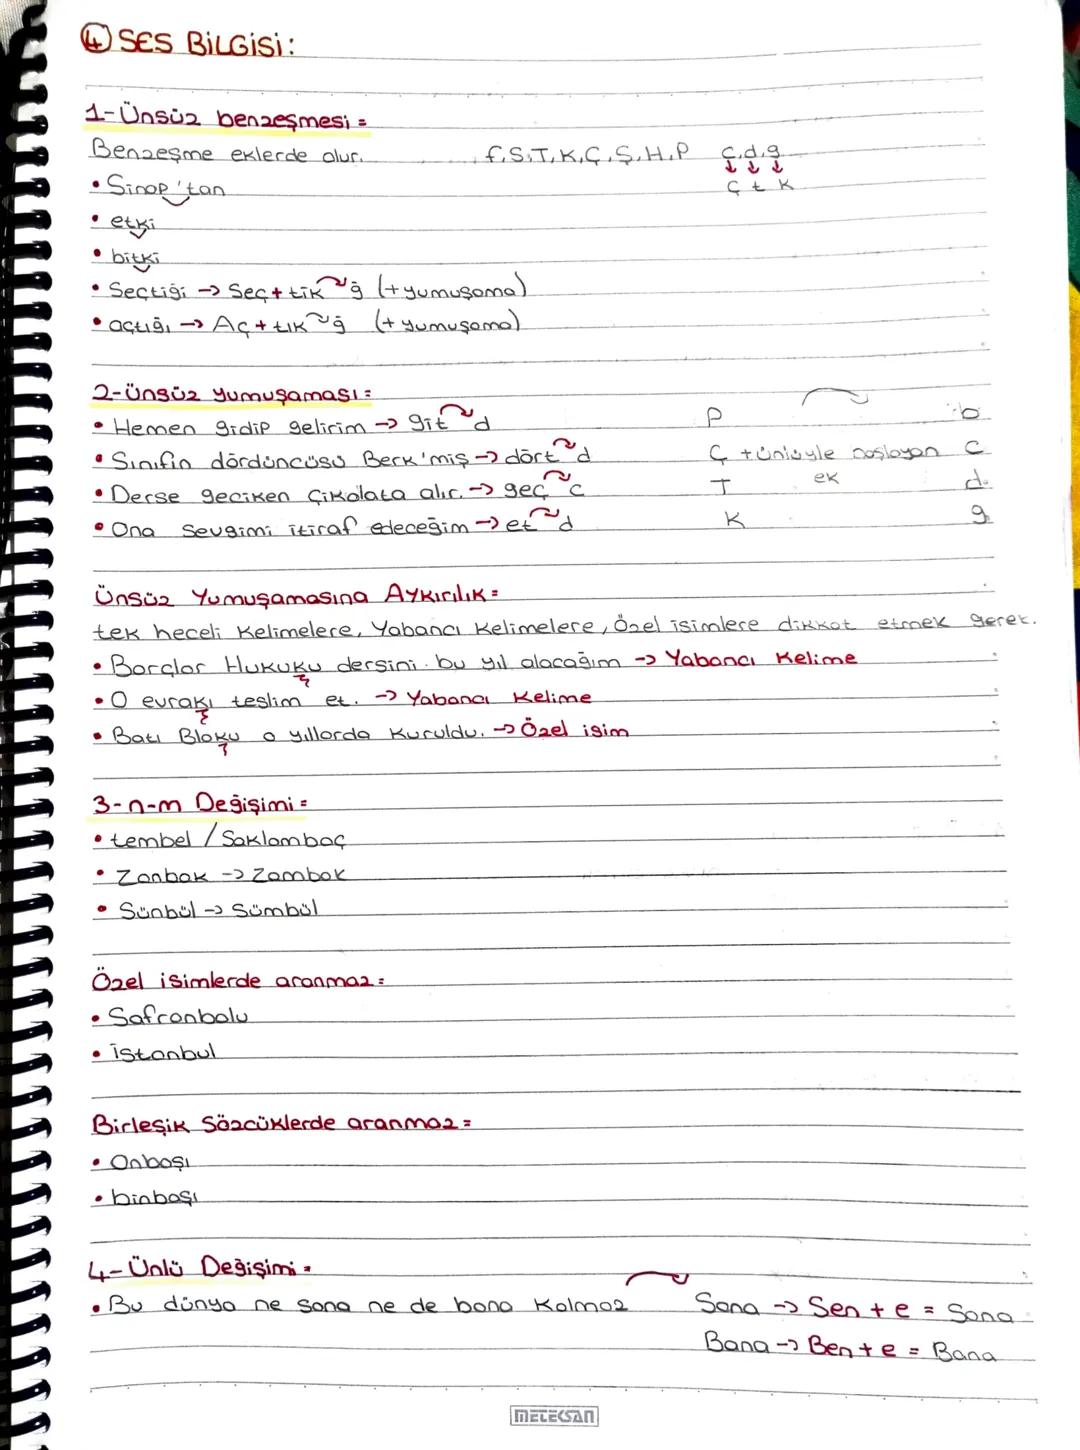 4 SES BİLGİSİ:
1-Ünsüz benzeşmesi =
Benzeşme eklerde olur. f,S,T,K,Ç,Ş,H,P c,d,g
ç t k
• Sinop'tan
• etki
• bitki
• Seçtiği → Seç+tik ğ (+yumuşama)
• açtığı → Aç+tık ğ (+yumuşama)
2-Ünsüz yumuşaması =
• Hemen gidip gelirim → git d P b
• Sınıfın dördüncüsü Berk'miş → dört d Ç +ünlüyle başlayan c
• Derse geciken çikolata alır. → geç c T ek d
• Ona sevgimi itiraf edeceğim → et d K g
Ünsüz Yumuşamasına Aykırılık =
tek heceli kelimelere, Yabancı kelimelere, Özel isimlere dikkat etmek gerek.
• Borçlar Hukuku dersini bu yıl alacağım → Yabancı Kelime
• O evrakı teslim et. → Yabancı Kelime
• Batı Bloku o yıllarda kuruldu. → Özel isim
3-n-m Değişimi =
• tembel / Saklambaç
• Zanbak → Zambak
• Sünbül → Sümbül
Özel isimlerde aranmaz =
• Safranbolu
• İstanbul
Birleşik Sözcüklerde aranmaz =
• Onbaşı
• binbaşı
4-Ünlü Değişimi =
• Bu dünya ne sana ne de bana kalmaz Sana → Sen + e = Sana
Bana → Ben + e = Bana
METEKSAN